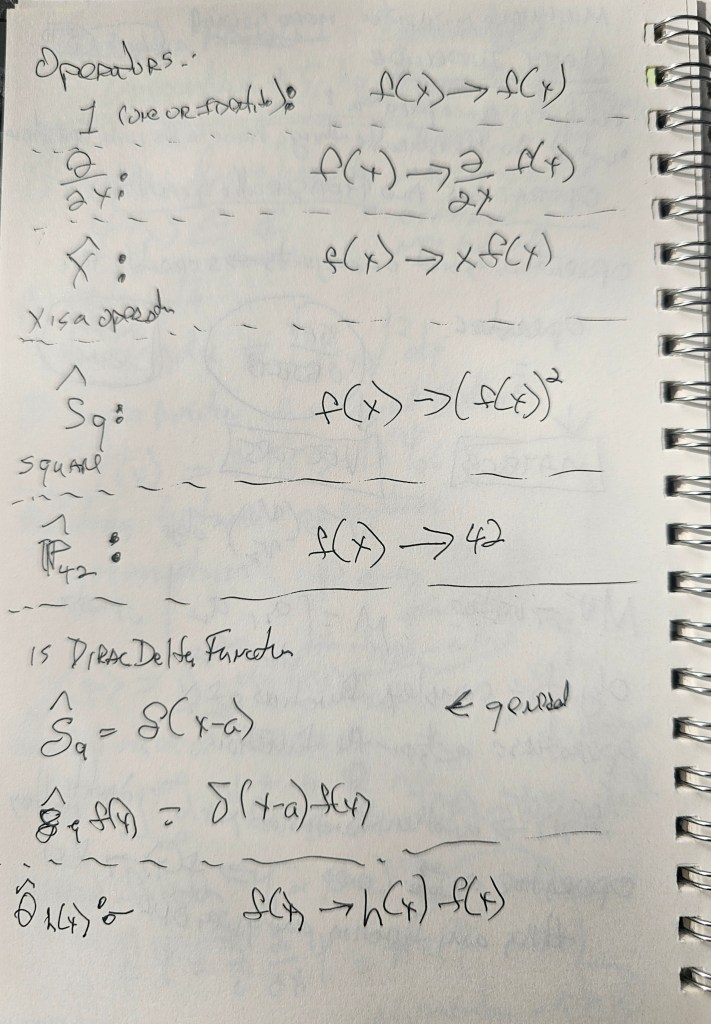 Operators:
1 (one or identity): f(x) → f(x)
∂/∂x: f(x) → ∂/∂x f(x)
x̂: f(x) → x f(x)
x is a operator
Ŝq: f(x) → (f(x))²
square
P̂₄₂: f(x) → 42
is Dirac Delta Function
δ̂ₐ = δ(x-a) ← general
δ̂ₐ f(x) = δ(x-a) f(x)
Ô h(x): f(x) → h(x) f(x)